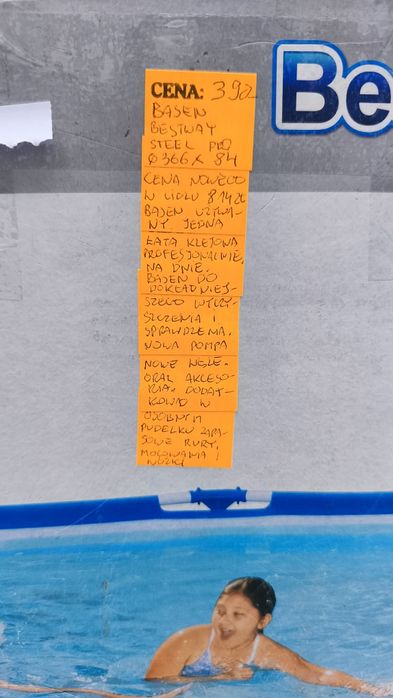 CENA: 390
BASEN
BESTWAY
STEEL PRO
Ø366X 84
CENA NOWEGO
W LIDLU 814 ZŁ
BASEN UŻYWA-
NY JEDNA
ŁATA KLEJONA
PROFESJONALNIE,
NA DNIE.
BASEN DO
DOKŁADNIEJ-
SZEGO WYCZY-
SZCZENIA I
SPRAWDZENIA.
NOWA POMPA
NOWE WĘŻE.
ORAZ AKCESO-
RIA. DODAT-
KOWO W
OSOBNYM
PUDEŁKU ZAPA-
SOWE RURY,
MOCOWANIA I
NÓŻKI
Be